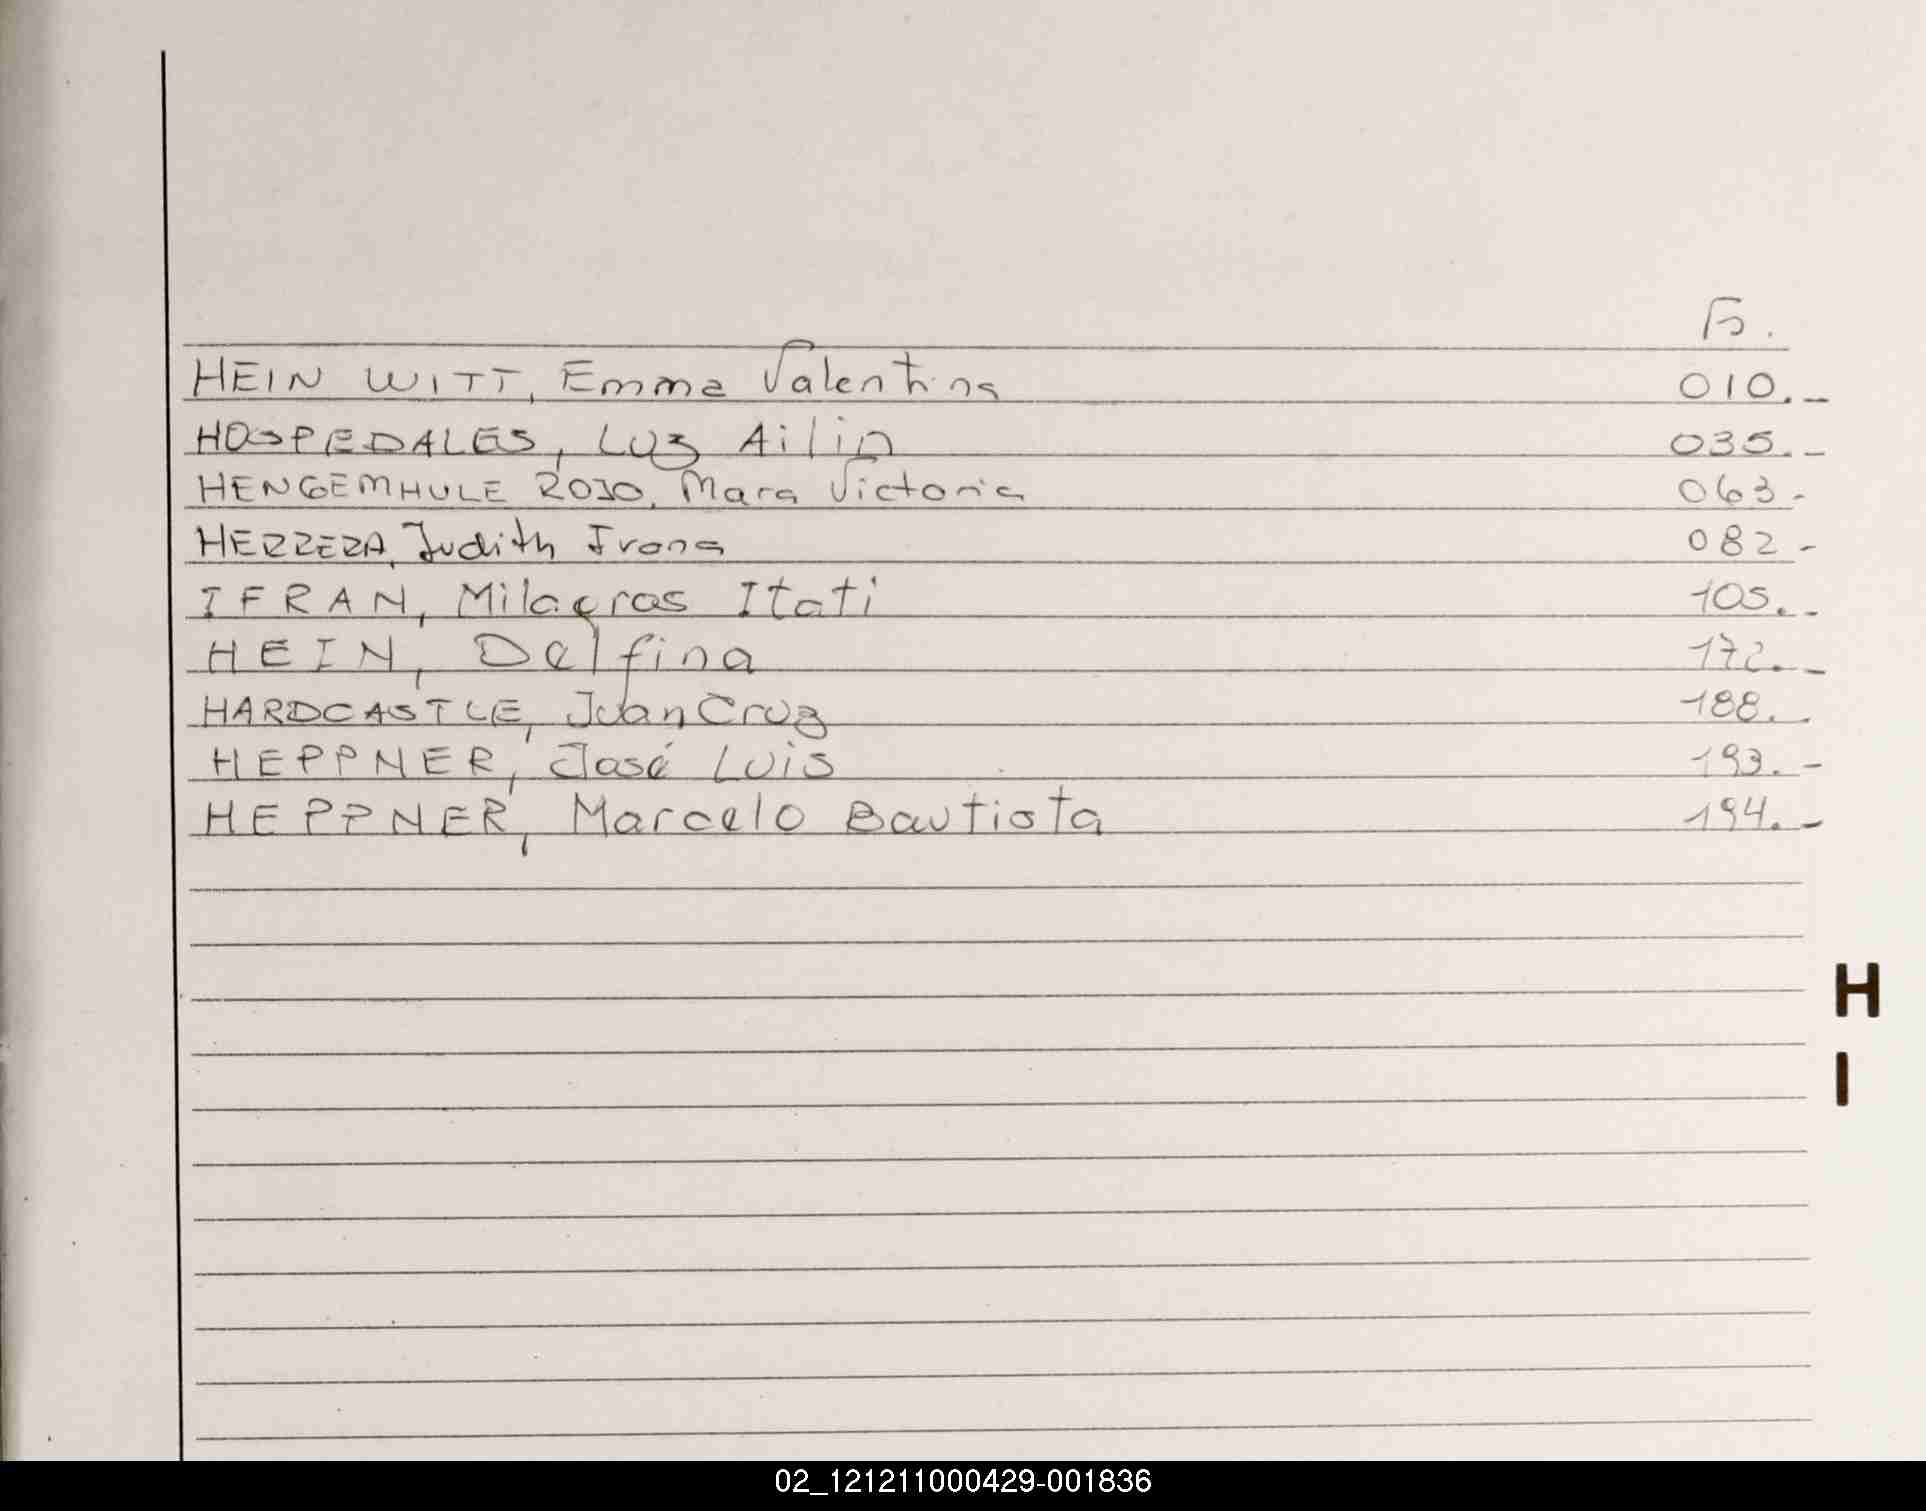 Fs.
HEIN WITT, Emma Valentina 010.-
HOSPEDALES, Luz Ailin 035.-
HENGEMHULE ROJO, Mara Victoria 063-
HERRERA, Judith Ivana 082-
IFRAN, Milagros Itati 105.-
HEIN, Delfina 172.-
HARDCASTLE, Juan Cruz 188.-
HEPPNER, José Luis 193.-
HEPPNER, Marcelo Bautista 194.-
H
I
02_121211000429-001836